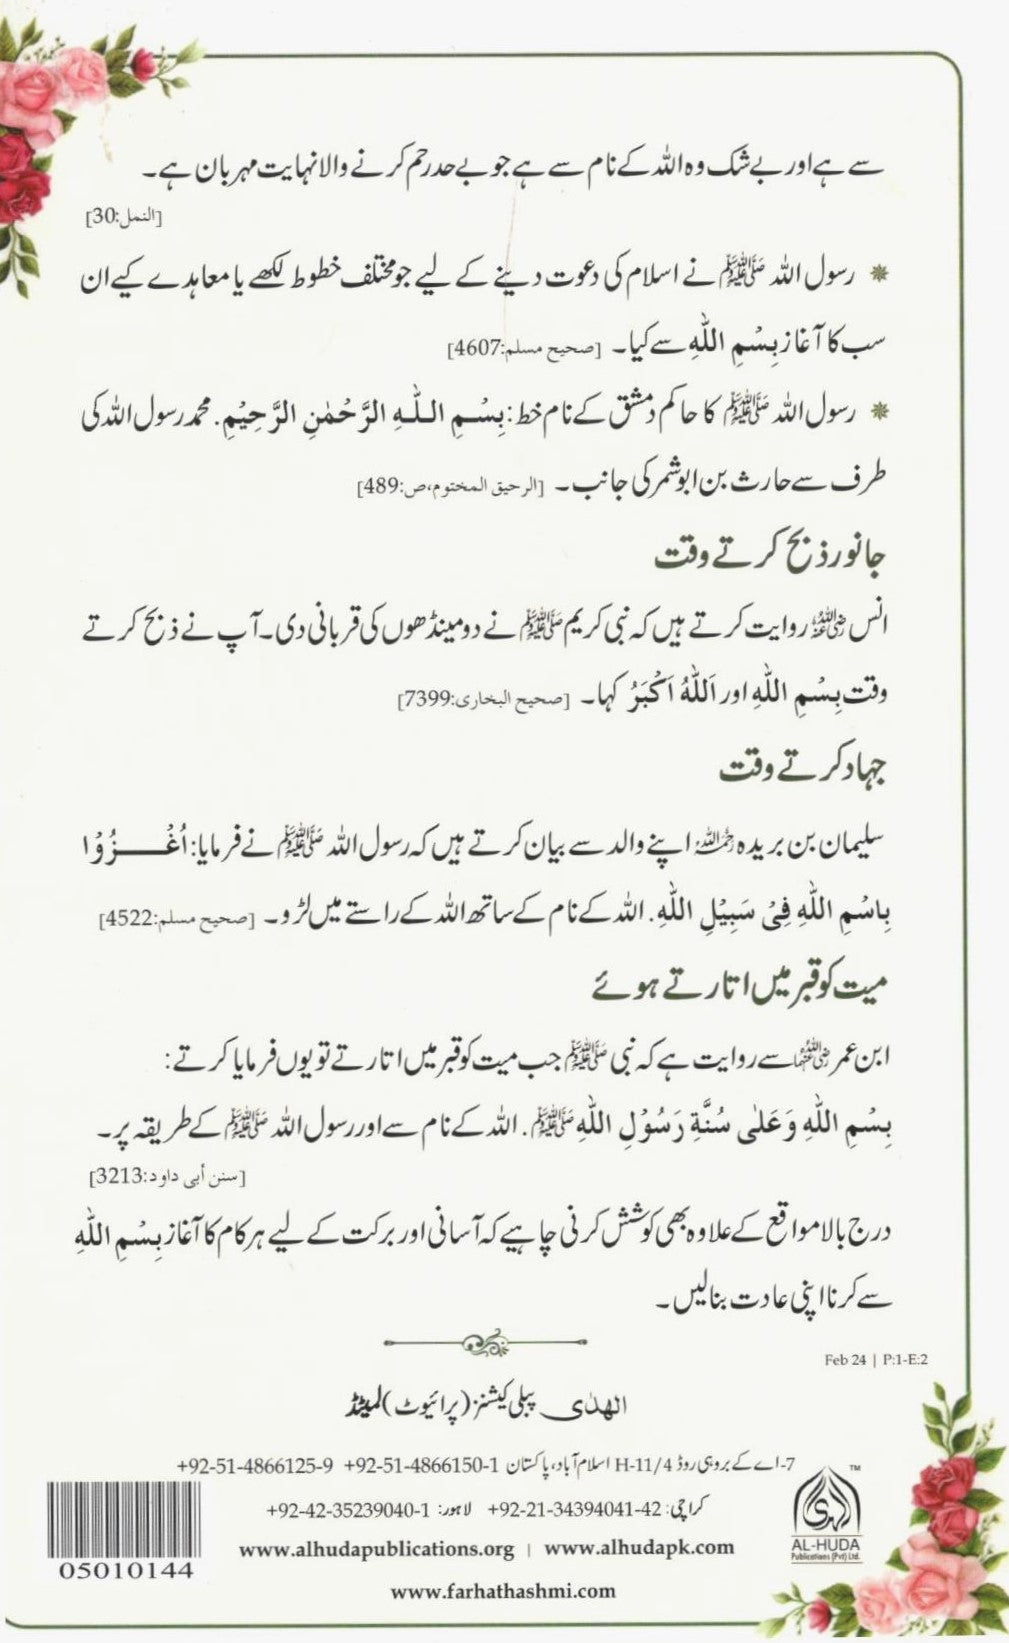 سے ہے اور بے شک وہ اللہ کے نام سے ہے جو بے حد رحم کرنے والا نہایت مہربان ہے۔
[النمل:30]
رسول اللہ ﷺ نے اسلام کی دعوت دینے کے لیے جو مختلف خطوط لکھے یا معاہدے کیے ان
سب کا آغاز بِسْمِ اللّٰهِ سے کیا۔ [صحیح مسلم:4607]
رسول اللہ ﷺ کا حاکم دمشق کے نام خط: بِسْمِ اللّٰهِ الرَّحْمٰنِ الرَّحِيْمِ. محمد رسول اللہ کی
طرف سے حارث بن ابو شمر کی جانب۔ [الرحیق المختوم،ص:489]
جانور ذبح کرتے وقت
انس رضی اللہ عنہ روایت کرتے ہیں کہ نبی کریم ﷺ نے دو مینڈھوں کی قربانی دی۔ آپ نے ذبح کرتے
وقت بِسْمِ اللّٰهِ اور اَللّٰهُ اَكْبَرُ کہا۔ [صحیح البخاری:7399]
جہاد کرتے وقت
سلیمان بن بریدہ رحمہ اللہ اپنے والد سے بیان کرتے ہیں کہ رسول اللہ ﷺ نے فرمایا: اُغْـــزُوْا
بِاسْمِ اللّٰهِ فِىْ سَبِيْلِ اللّٰهِ. اللہ کے نام کے ساتھ اللہ کے راستے میں لڑو۔ [صحیح مسلم:4522]
میت کو قبر میں اتارتے ہوئے
ابن عمر رضی اللہ عنہما سے روایت ہے کہ نبی ﷺ جب میت کو قبر میں اتارتے تو یوں فرمایا کرتے:
بِسْمِ اللّٰهِ وَعَلٰى سُنَّةِ رَسُوْلِ اللّٰهِ ﷺ. اللہ کے نام سے اور رسول اللہ ﷺ کے طریقہ پر۔
[سنن أبی داود:3213]
درج بالا مواقع کے علاوہ بھی کوشش کرنی چاہیے کہ آسانی اور برکت کے لیے ہر کام کا آغاز بِسْمِ اللّٰهِ
سے کرنا اپنی عادت بنالیں۔
Feb 24 | P:1-E:2
الھدٰی پبلی کیشنز (پرائیوٹ) لمیٹڈ
7-اے کے بروہی روڈ H-11/4 اسلام آباد، پاکستان +92-51-4866150-1 +92-51-4866125-9
کراچی: +92-21-34394041-42 لاہور: +92-42-35239040-1
www.alhudapublications.org | www.alhudapk.com
www.farhathashmi.com
05010144
الھدٰی
TM
AL-HUDA
Publications (Pvt) Ltd.